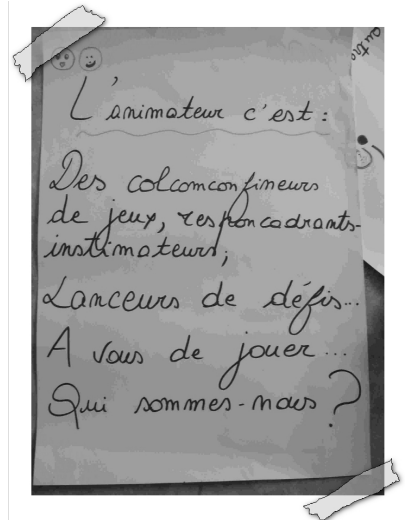 L'animateur c'est :
Des colcomconfineurs
de jeux, responcadrants-
instimateurs,
Lanceurs de défis...
A vous de jouer...
Qui sommes-nous ?
autre